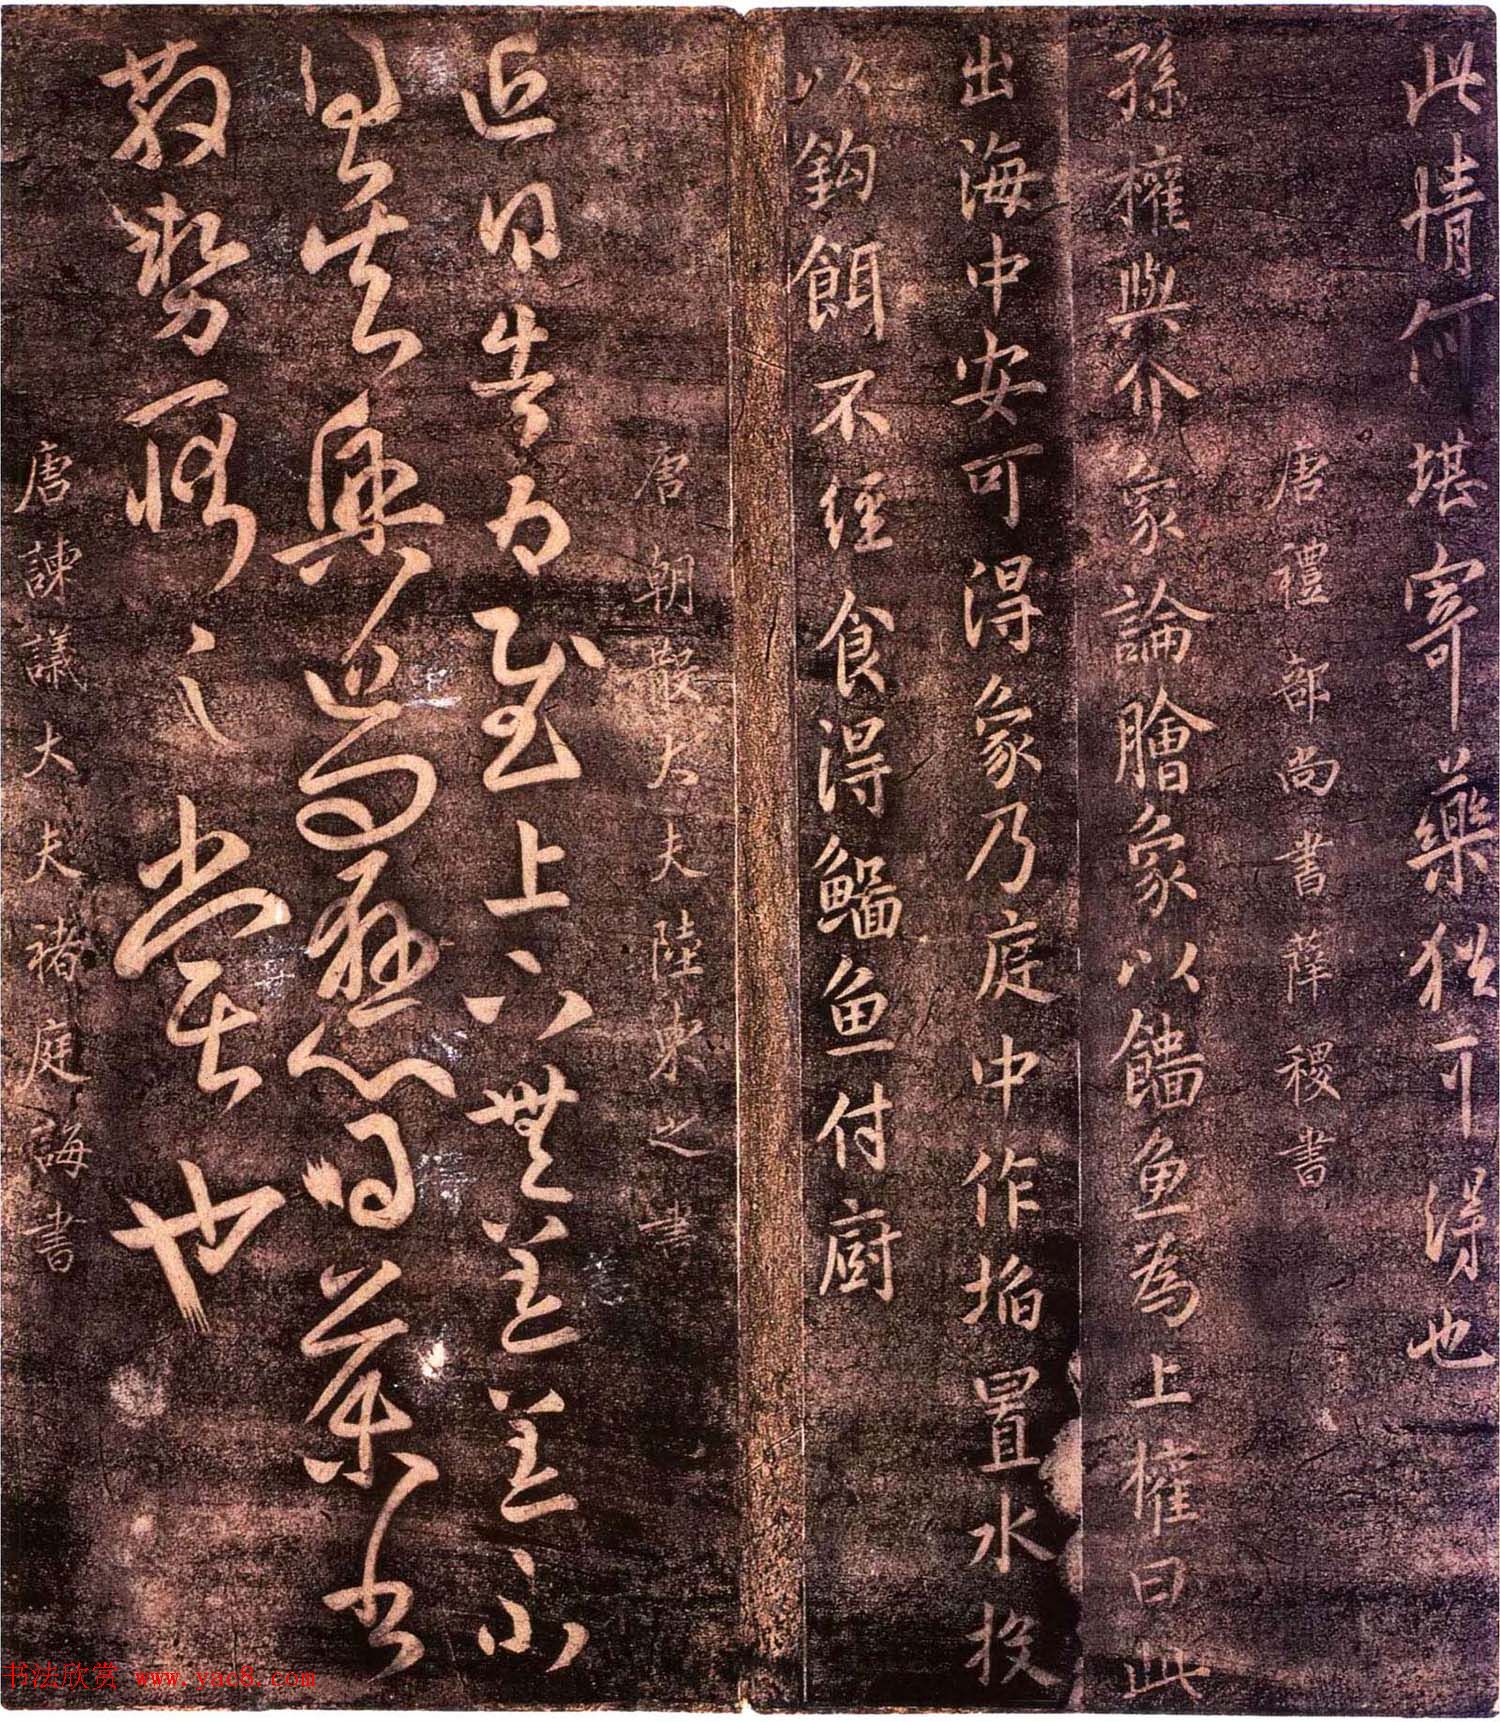 此情何堪寄藥猶可得也
唐禮部尚書薛稷書
孫權與介象論膾象以鯔魚為上權曰此
出海中安可得象乃庭中作埳置水投
以鈎餌不經食得鯔魚付廚
唐朝散大夫陸柬之書
近得告為慰上下無恙恙不
得吳興近問懸心得藥書
散勢之當也
唐諫議大夫褚庭誨書
书法欣赏 www.yac8.com